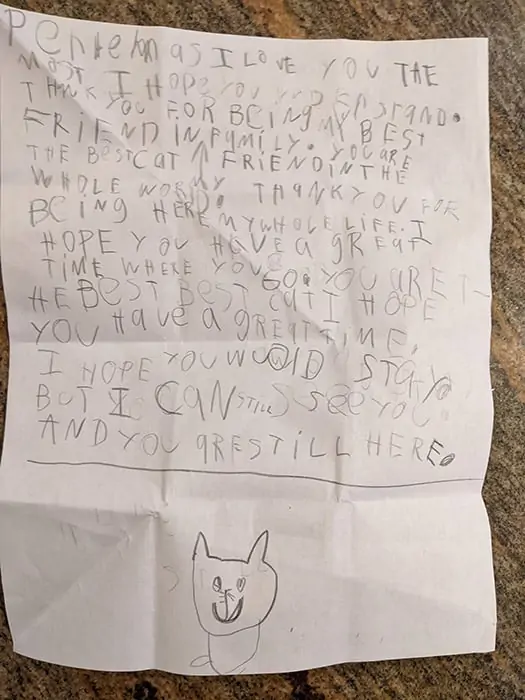 AS I LOVE YOU THE
MOST I HOPE YOU
THNK YOU FOR BCING MY BEST
FRIEND IN FAMILY. YOU ARE
THE BEST CAT FRIEND IN THE
WHOLE THANK YOU FOR
BCING HERE MY WHOLE LIFE. I
HOPE YOU HAVE A GREAT
TIME WHERE YOU GO. YOU ARE T-
HE BEST BEST CAT I HOPE
YOU HAVE A GREAT TIME.
I HOPE YOU WOULD STAY
BUT I CAN STILL SEE YOU.
AND YOU ARE STILL HERE.